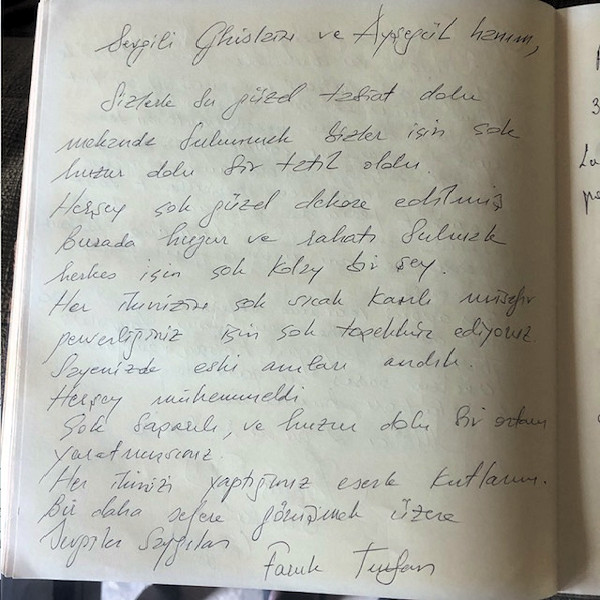 Sevgili Ghislain ve Ayşegül hanım,
Sizlerle bu güzel tabiat dolu
mekanda bulunmak bizler için çok
huzur dolu bir tatil oldu.
Herşey çok güzel dekore edilmiş
Burada huzur ve rahatı bulmak
herkes için çok kolay bir şey.
Her ikinizin çok sıcak kanlı misafir
perverliğiniz için çok teşekkür ediyoruz.
Sayenizde eski anıları andık.
Herşey mühemmeldi
Çok başarılı, ve huzur dolu bir ortam
yaratmışsınız.
Her ikinizi yaptığınız eserle kutlarım.
Bir daha sefere görüşmek üzere
Sevgiler Saygılar
Faruk
3